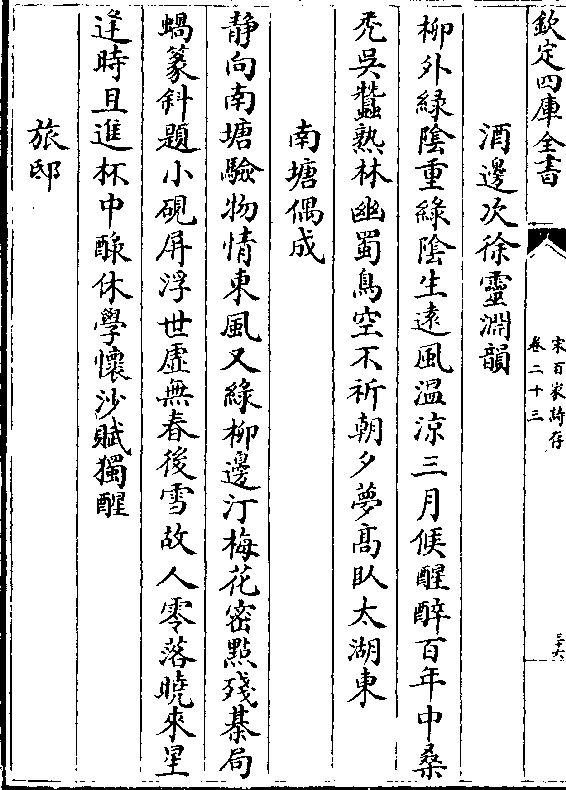 欽定四庫全書
宋百家詩存
卷二十三
三十六
酒邊次徐靈淵韻
柳外緑陰重綠陰生遠風溫涼三月候醒醉百年中桑
禿吳蠶熟林幽蜀鳥空不祈朝夕夢髙臥太湖東
南塘偶成
静向南塘驗物情東風又綠柳邊汀梅花密點殘棊局
蝸篆斜題小硯屏浮世虛無春後雪故人零落曉來星
逢時且進杯中醁休學懷沙賦獨醒
旅邸